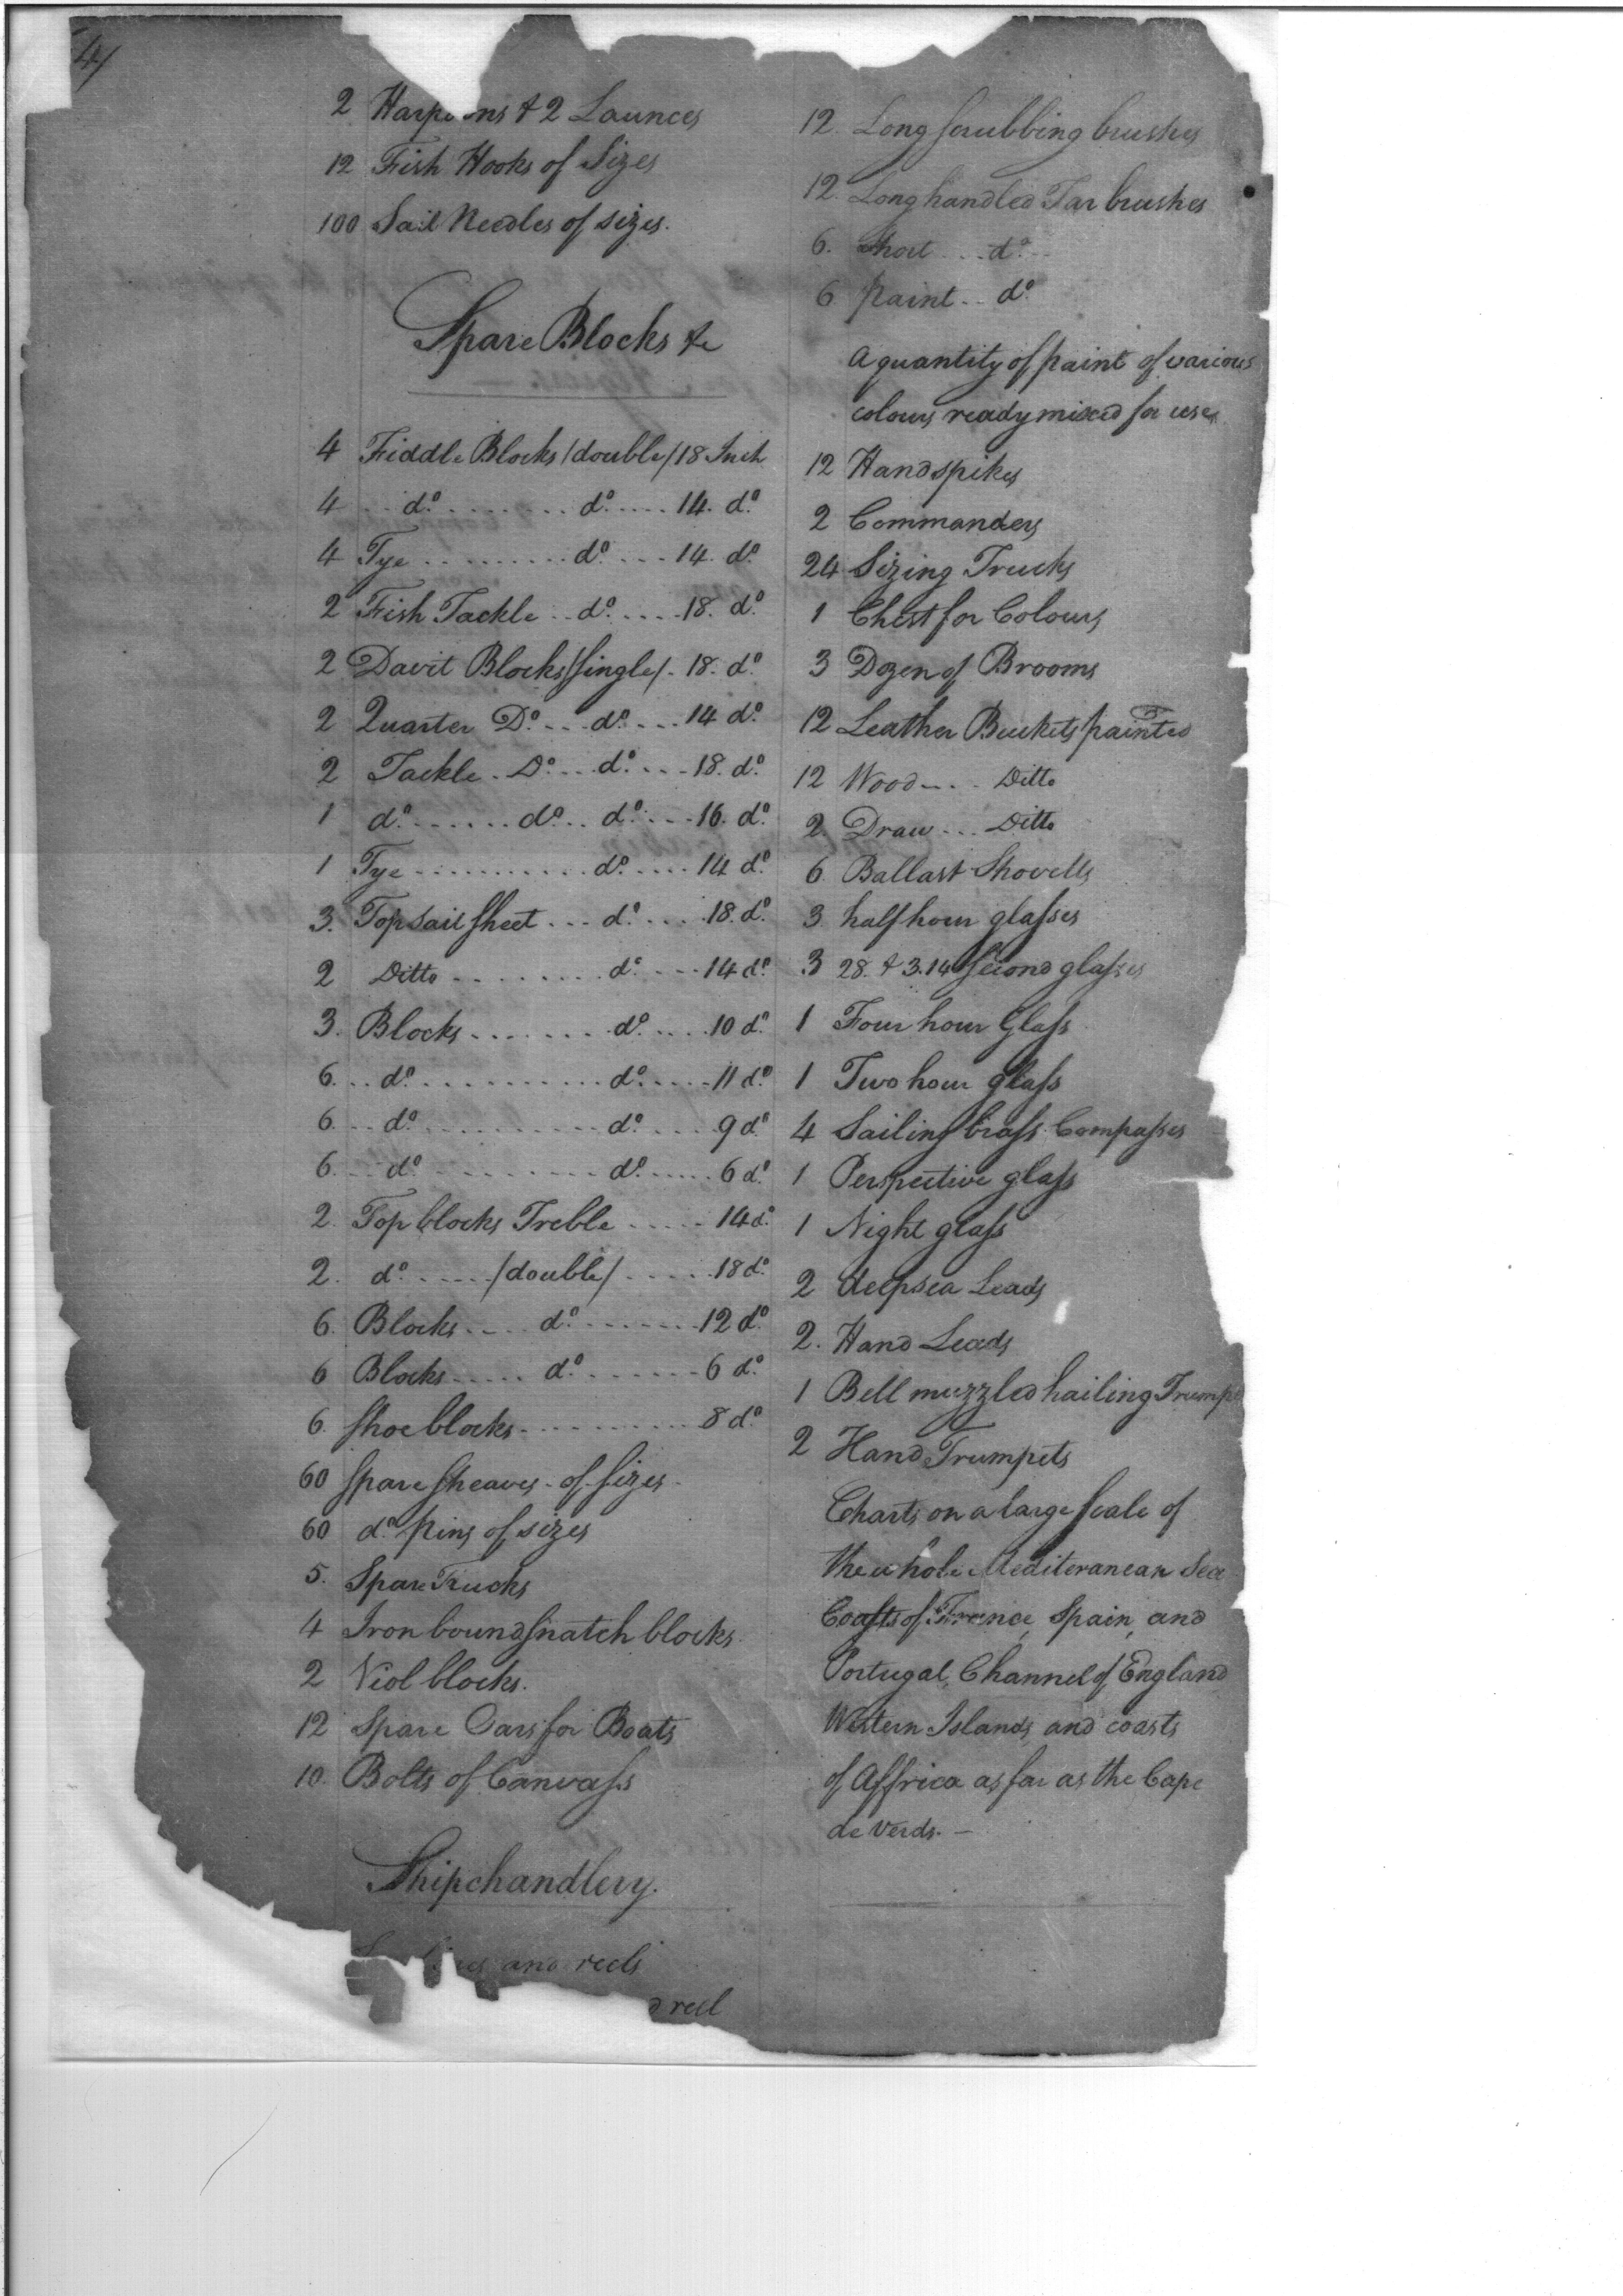 4/
2 Harpoons & 2 Launces
12 Fish Hooks of Sizes
100 Sail Needles of sizes.
Spare Blocks &c
4 Fiddle Blocks /double/ 18 Inch
4 do do 14. do
4 Tye do 14. do
2 Fish Tackle do 18. do
2 Davit Blocks /single/ 18. do
2 Quarter Do do 14 do
2 Tackle Do do 18. do
1 do do do 16. do
1 Tye do 14 do
3. Topsail sheet do 18. do
2 Ditto do 14 do
3. Blocks do 10 do
6. do do 11 do
6. do do 9 do
6. do do 6 do
2. Top blocks Treble 14 do
2. do /double/ 18 do
6. Blocks do 12 do
6 Blocks do 6 do
6. shoe blocks 8 do
60 spare sheaves of sizes
60 do pins of sizes
5. Spare Trucks
4 Iron bound snatch blocks
2 Viol blocks.
12 Spare Oars for Boats
10. Bolts of Canvass
Shipchandlery.
and reels
reel
12. Long scrubbing brushes
12. Long handled Tar brushes
6. short do
6 paint do
A quantity of paint of various
colours ready mixed for use
12 Handspikes
2 Commanders
24 Sizing Trucks
1 Chest for Colours
3 Dozen of Brooms
12 Leather Buckets painted
12 Wood Ditto
2. Draw Ditto
6 Ballast Shovells
3 half hour glasses
3 28. & 3. 14 second glasses
1 Four hour Glass
1 Two hour glass
4 Sailing brass Compasses
1 Perspective glass
1 Night glass
2 deepsea Leads
2. Hand Leads
1 Bell muzzled hailing Trump
2 Hand Trumpets
Charts on a large scale of
the whole Mediteranean Sea
Coasts of France, Spain, and
Portugal, Channel of England
Western Islands and coasts
of Affrica as far as the Cape
de Verds. —